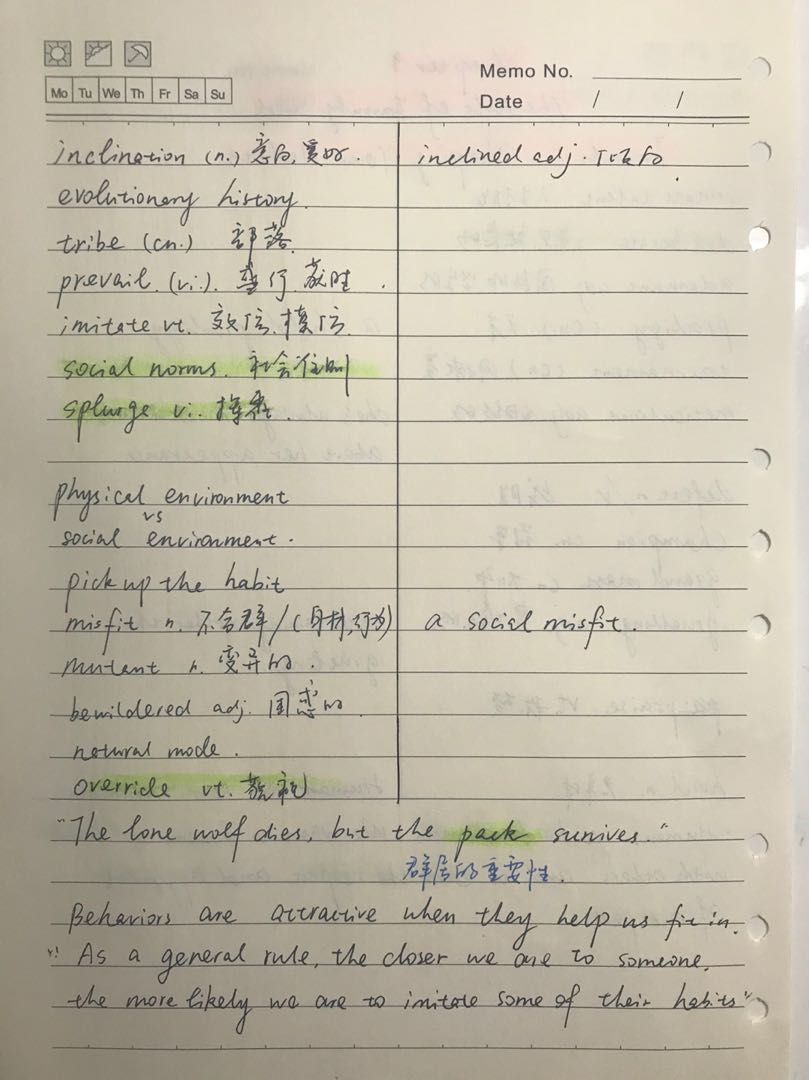 Memo No.
Mo Tu We Th Fr Sa Su
Date / /
inclination (n.) 意向,爱好. inclined adj.
evolutionary history.
tribe (cn.) 部落.
prevail. (vi.). 盛行 获胜.
imitate vt. 效仿.模仿.
social norms. 社会准则
splurge vi. 挥霍.
physical environment
vs
social environment.
pick up the habit
misfit n. 不合群/(身材,行为) a social misfit.
mutant n. 变异的.
bewildered adj. 困惑的.
natural mode.
override vt. 藐视
"The lone wolf dies, but the pack survives."
群居的重要性.
Behaviors are attractive when they help us fit in.
"As a general rule, the closer we are to someone,
the more likely we are to imitate some of their habits"